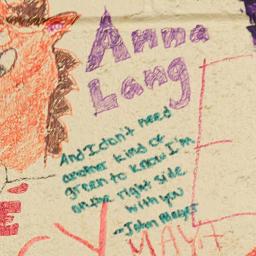 Anna
Lang
And I don't need
another kind of
green to know I'm
on the right side
with you
--John Mayer
MAYA